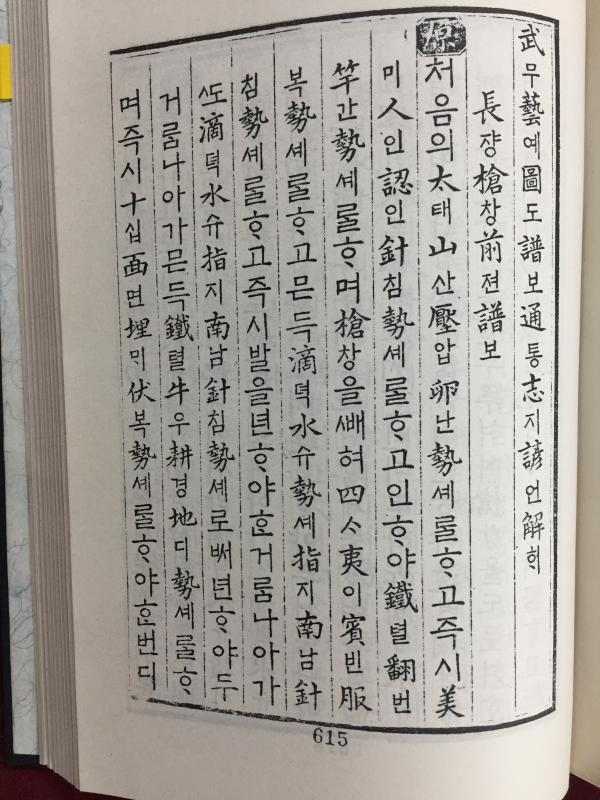 武무藝예圖도譜보通통志지諺언解ᄒᆡ
長쟝槍창前젼譜보
原처음의太태山산壓압卵난勢셰ᄅᆞᆯᄒᆞ고즉시美
미人인認인針침勢셰ᄅᆞᆯᄒᆞ고인ᄒᆞ야鐵텰翻번
竿간勢셰ᄅᆞᆯᄒᆞ며槍창을ᄲᅢ혀四ᄉᆞ夷이賓빈服
복勢셰ᄅᆞᆯᄒᆞ고믄득滴뎍水슈勢셰指지南남針
침勢셰ᄅᆞᆯᄒᆞ고즉시발을년ᄒᆞ야ᄒᆞᆫ거룸나아가
ᄯᅩ滴뎍水슈指지南남針침勢셰로ᄡᅥ년ᄒᆞ야두
거룸나아가믄득鐵텰牛우耕경地디勢셰ᄅᆞᆯᄒᆞ
며즉시十십面면埋ᄆᆡ伏복勢셰ᄅᆞᆯᄒᆞ야ᄒᆞᆫ번디
615